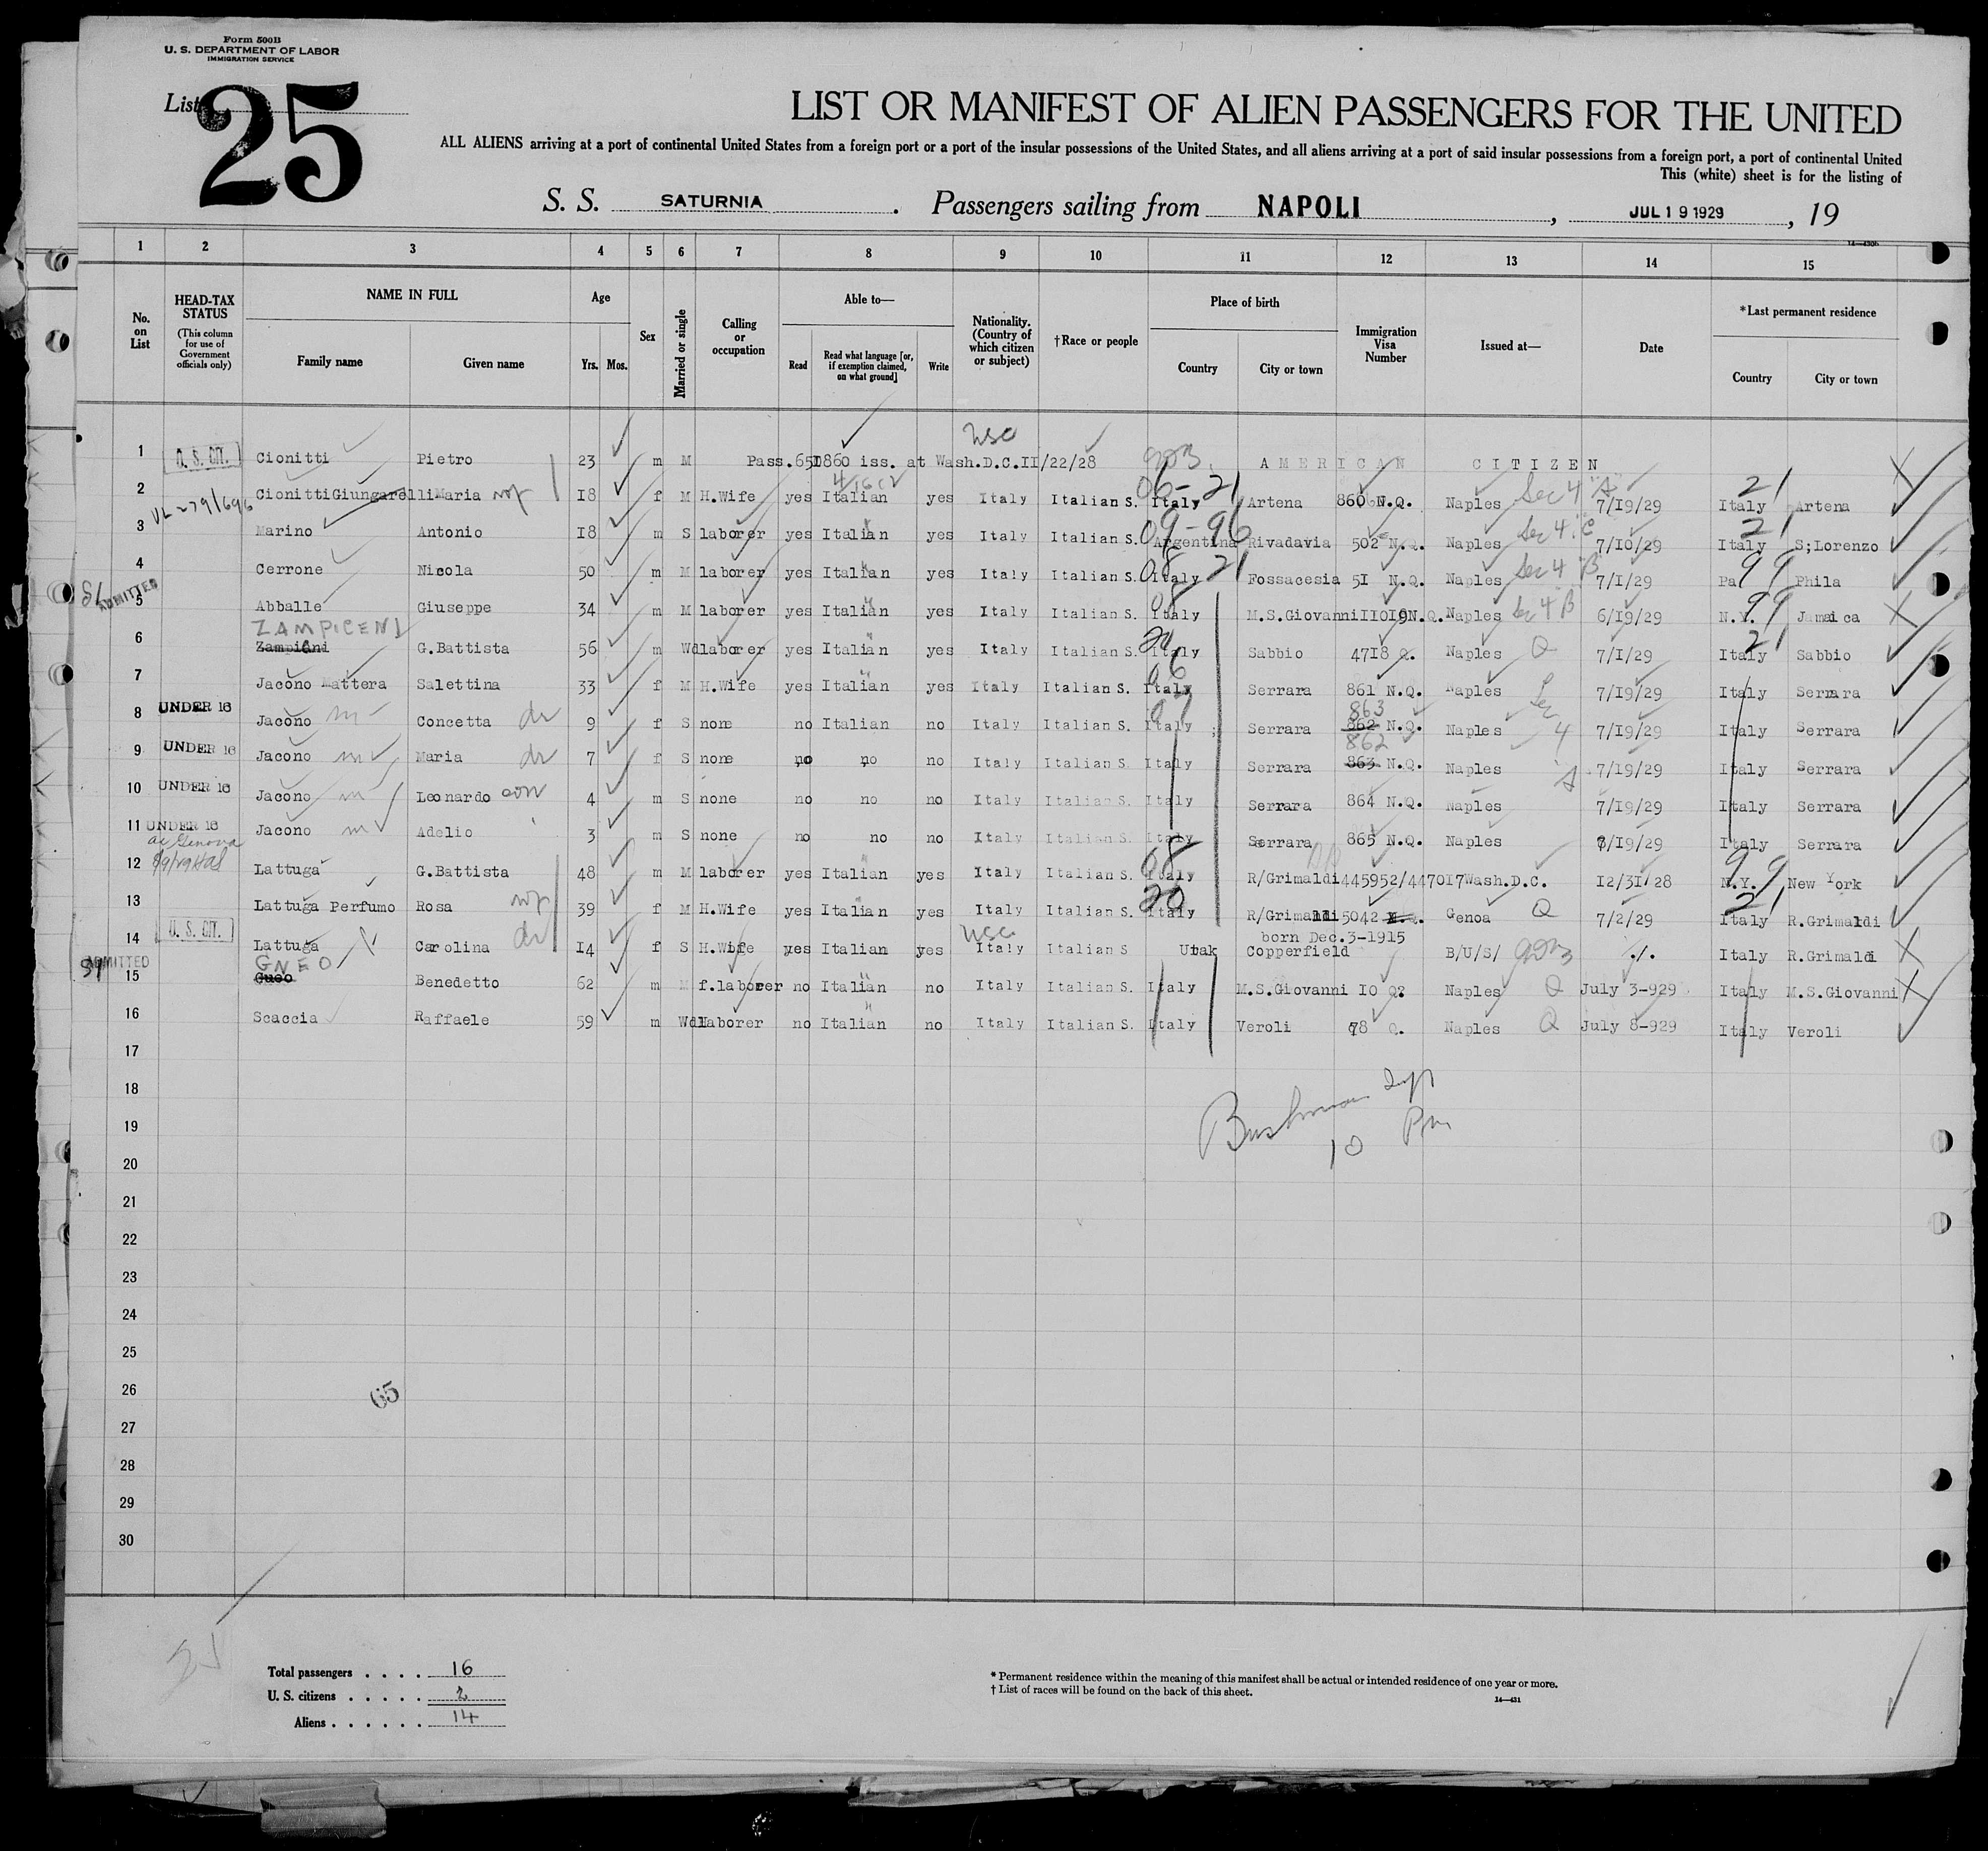 Form 500B
U. S. DEPARTMENT OF LABOR
IMMIGRATION SERVICE
List 25
LIST OR MANIFEST OF ALIEN PASSENGERS FOR THE UNITED
ALL ALIENS arriving at a port of continental United States from a foreign port or a port of the insular possessions of the United States, and all aliens arriving at a port of said insular possessions from a foreign port, a port of continental United
This (white) sheet is for the listing of
S. S. SATURNIA . Passengers sailing from NAPOLI , JUL 19 1929 , 19
1 2 3 4 5 6 7 8 9 10 11 12 13 14 15
No. on List
HEAD-TAX STATUS (This column for use of Government officials only)
NAME IN FULL
Family name Given name
Age
Yrs. Mos.
Sex
Married or single
Calling or occupation
Able to—
Read Read what language [or, if exemption claimed, on what ground] Write
Nationality. (Country of which citizen or subject)
†Race or people
Place of birth
Country City or town
Immigration Visa Number
Issued at—
Date
*Last permanent residence
Country City or town
usc
1 U. S. CIT. Cionitti Pietro 23 m M Pass. iss. at Wash.D.C.II/22/28 AMERICAN CITIZEN
2 Cionitti Giungarelli Maria 18 f M H.Wife yes Italian yes Italy Italian S. Italy Artena 860 N.Q. Naples Sec 4 A 7/19/29 Italy Artena
3 Marino Antonio 18 m S laborer yes Italian yes Italy Italian S. Argentina Rivadavia 502 N.Q. Naples Sec 4 C 7/10/29 Italy S;Lorenzo
4 Cerrone Nicola 50 m M laborer yes Italian yes Italy Italian S. Italy Fossacesia 51 N.Q. Naples Sec 4 B 7/1/29 Pa Phila
ADMITTED
5 Abballe Giuseppe 34 m M laborer yes Italian yes Italy Italian S. Italy M.S.Giovanni II0I9 N.Q. Naples Sec 4 B 6/19/29 N.Y. Jamaica
ZAMPICENI
6 G.Battista 56 m Wd laborer yes Italian yes Italy Italian S. Italy Sabbio 4718 Q. Naples Q 7/1/29 Italy Sabbio
7 Jacono Mattera Salettina 33 f M H.Wife yes Italian yes Italy Italian S. Italy Serrara 861 N.Q. Naples 7/19/29 Italy Serrara
863
8 UNDER 16 Jacono Concetta 9 f S none no Italian no Italy Italian S. Italy Serrara 862 N.Q. Naples 7/19/29 Italy Serrara
862
9 UNDER 16 Jacono Maria 7 f S none no no no Italy Italian S. Italy Serrara 863 N.Q. Naples 7/19/29 Italy Serrara
10 UNDER 16 Jacono Leonardo 4 m S none no no no Italy Italian S. Italy Serrara 864 N.Q. Naples 7/19/29 Italy Serrara
11 UNDER 16 Jacono Adelio 3 m S none no no no Italy Italian S. Italy Serrara 865 N.Q. Naples 7/19/29 Italy Serrara
12 Lattuga G.Battista 48 m M laborer yes Italian yes Italy Italian S. Italy R/Grimaldi 445952/447017 Wash.D.C. 12/31/28 N.Y. New York
13 Lattuga Perfumo Rosa 39 f M H.Wife yes Italian yes Italy Italian S. Italy R/Grimaldi 5042 Genoa Q 7/2/29 Italy R.Grimaldi
usc born Dec.3-1915
14 U. S. CIT. Lattuga Carolina 14 f S H.Wife yes Italian yes Italy Italian S Utak Copperfield B/U/S/ ./. Italy R.Grimaldi
ADMITTED GNEO
15 Benedetto 62 m M f.laborer no Italian no Italy Italian S. Italy M.S.Giovanni 10 Q? Naples Q July 3-929 Italy M.S.Giovanni
16 Scaccia Raffaele 59 m Wd laborer no Italian no Italy Italian S. Italy Veroli 78 Q. Naples Q July 8-929 Italy Veroli
17
18
19
20
21
22
23
24
25
26
27
28
29
30
65
Total passengers . . . . 16
U. S. citizens . . . . . 2
Aliens . . . . . . 14
* Permanent residence within the meaning of this manifest shall be actual or intended residence of one year or more.
† List of races will be found on the back of this sheet.
14—431